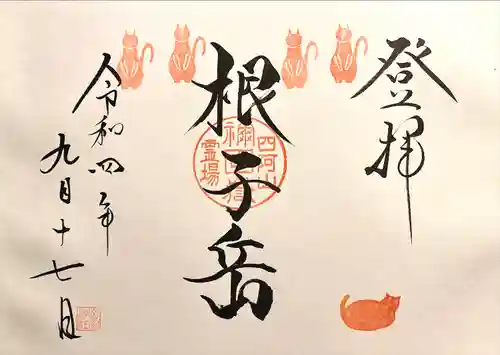 登拝
根子岳
令和四年
九月十七日
四阿山
霊場